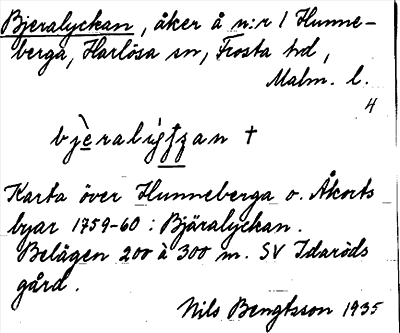 Bjeralyckan, åker å n:r 1 Hunne-
berga, Harlösa sn, Frosta hd,
Malm. l.
4
Karta över Hunneberga o. Åkarts
byar 1759-60: Bjäralyckan.
Belägen 200 à 300 m. SV Idaröds
gård.
Nils Bengtsson 1935